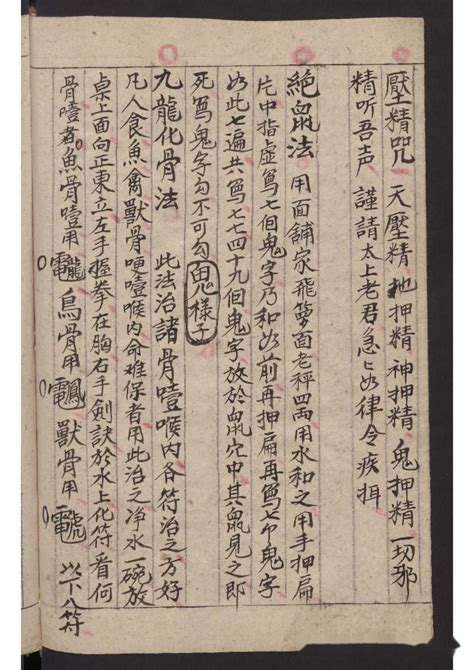 壓精咒　天壓精　地押精　神押精　鬼押精　一切邪
精听吾声　謹請太上老君急〻如律令疾䬴
絕鼠法　用面舖家飛箩面老秤四両用水和之用手押扁
片中指虛写七個鬼字乃和如前再押扁再写七个鬼字
如此七遍共写七七四十九個鬼字放於鼠穴中其鼠見之即
死写鬼字勾不可勾　鬼樣子
九龍化骨法　此法治諸骨噎喉內各符治之方好
凡人食魚禽獸骨哽噎喉內命难保者用此治之净水一碗放
桌上面向正東立左手握拳在胸右手劍訣於水上化符看何
骨噎者魚骨噎用　鳥骨用　獸骨用　以下八符